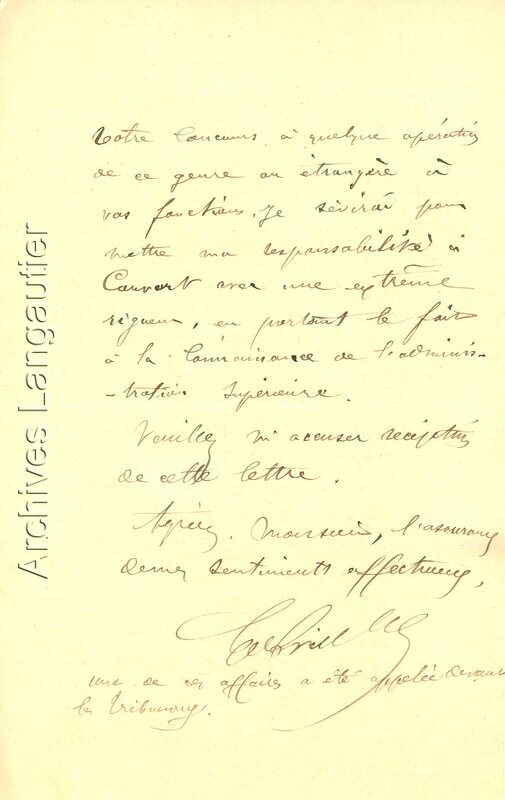 votre concours à quelque opération
de ce genre ou étrangère à
vos fonctions. Je sévirai pour
mettre ma responsabilité à
Couvert avec une extrême
rigueur, en portant le fait
à la connaissance de l'adminis-
-tration Supérieure.
Veuillez m'accuser réception
de cette lettre.
Agréez, Monsieur, l'assurance
de mes sentiments affectueux,
une de ces affaires a été appelée devant
les Tribunaux.
Archives Langautier